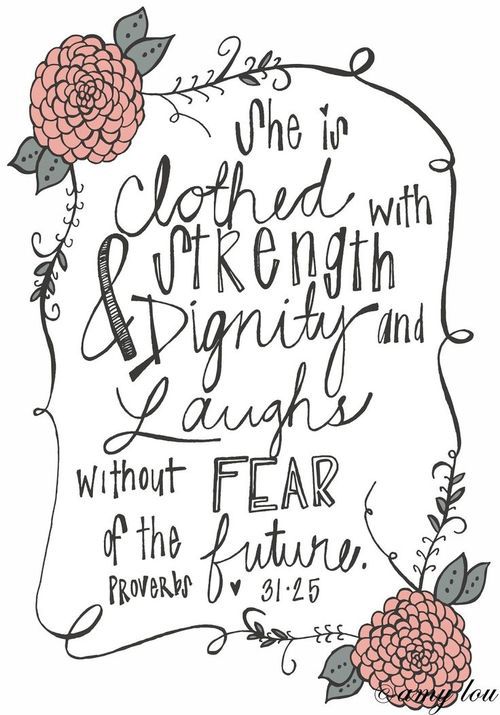 She is
Clothed with
STRENGTH
& Dignity and
Laughs
without FEAR
of the future.
PROVERBS ♥ 31·25
©amy lou